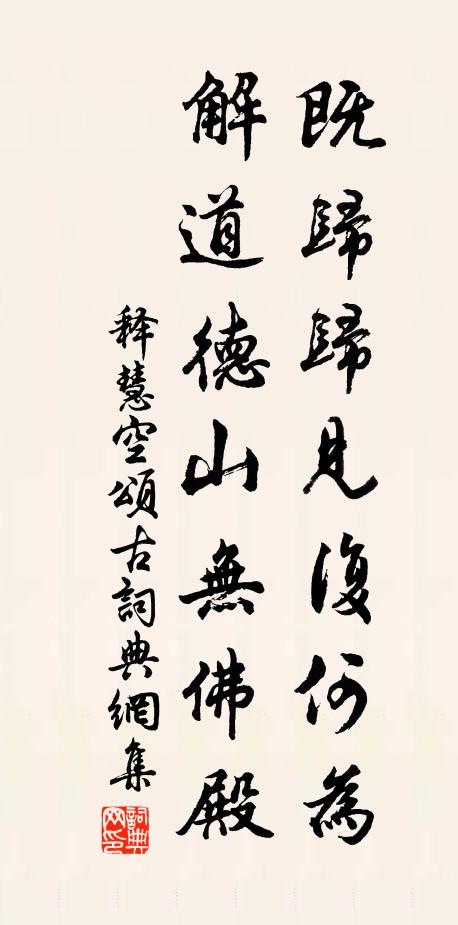 既歸歸見復何為
解道德山無佛殿
釋慧空頌古詞典網集
詞典網印